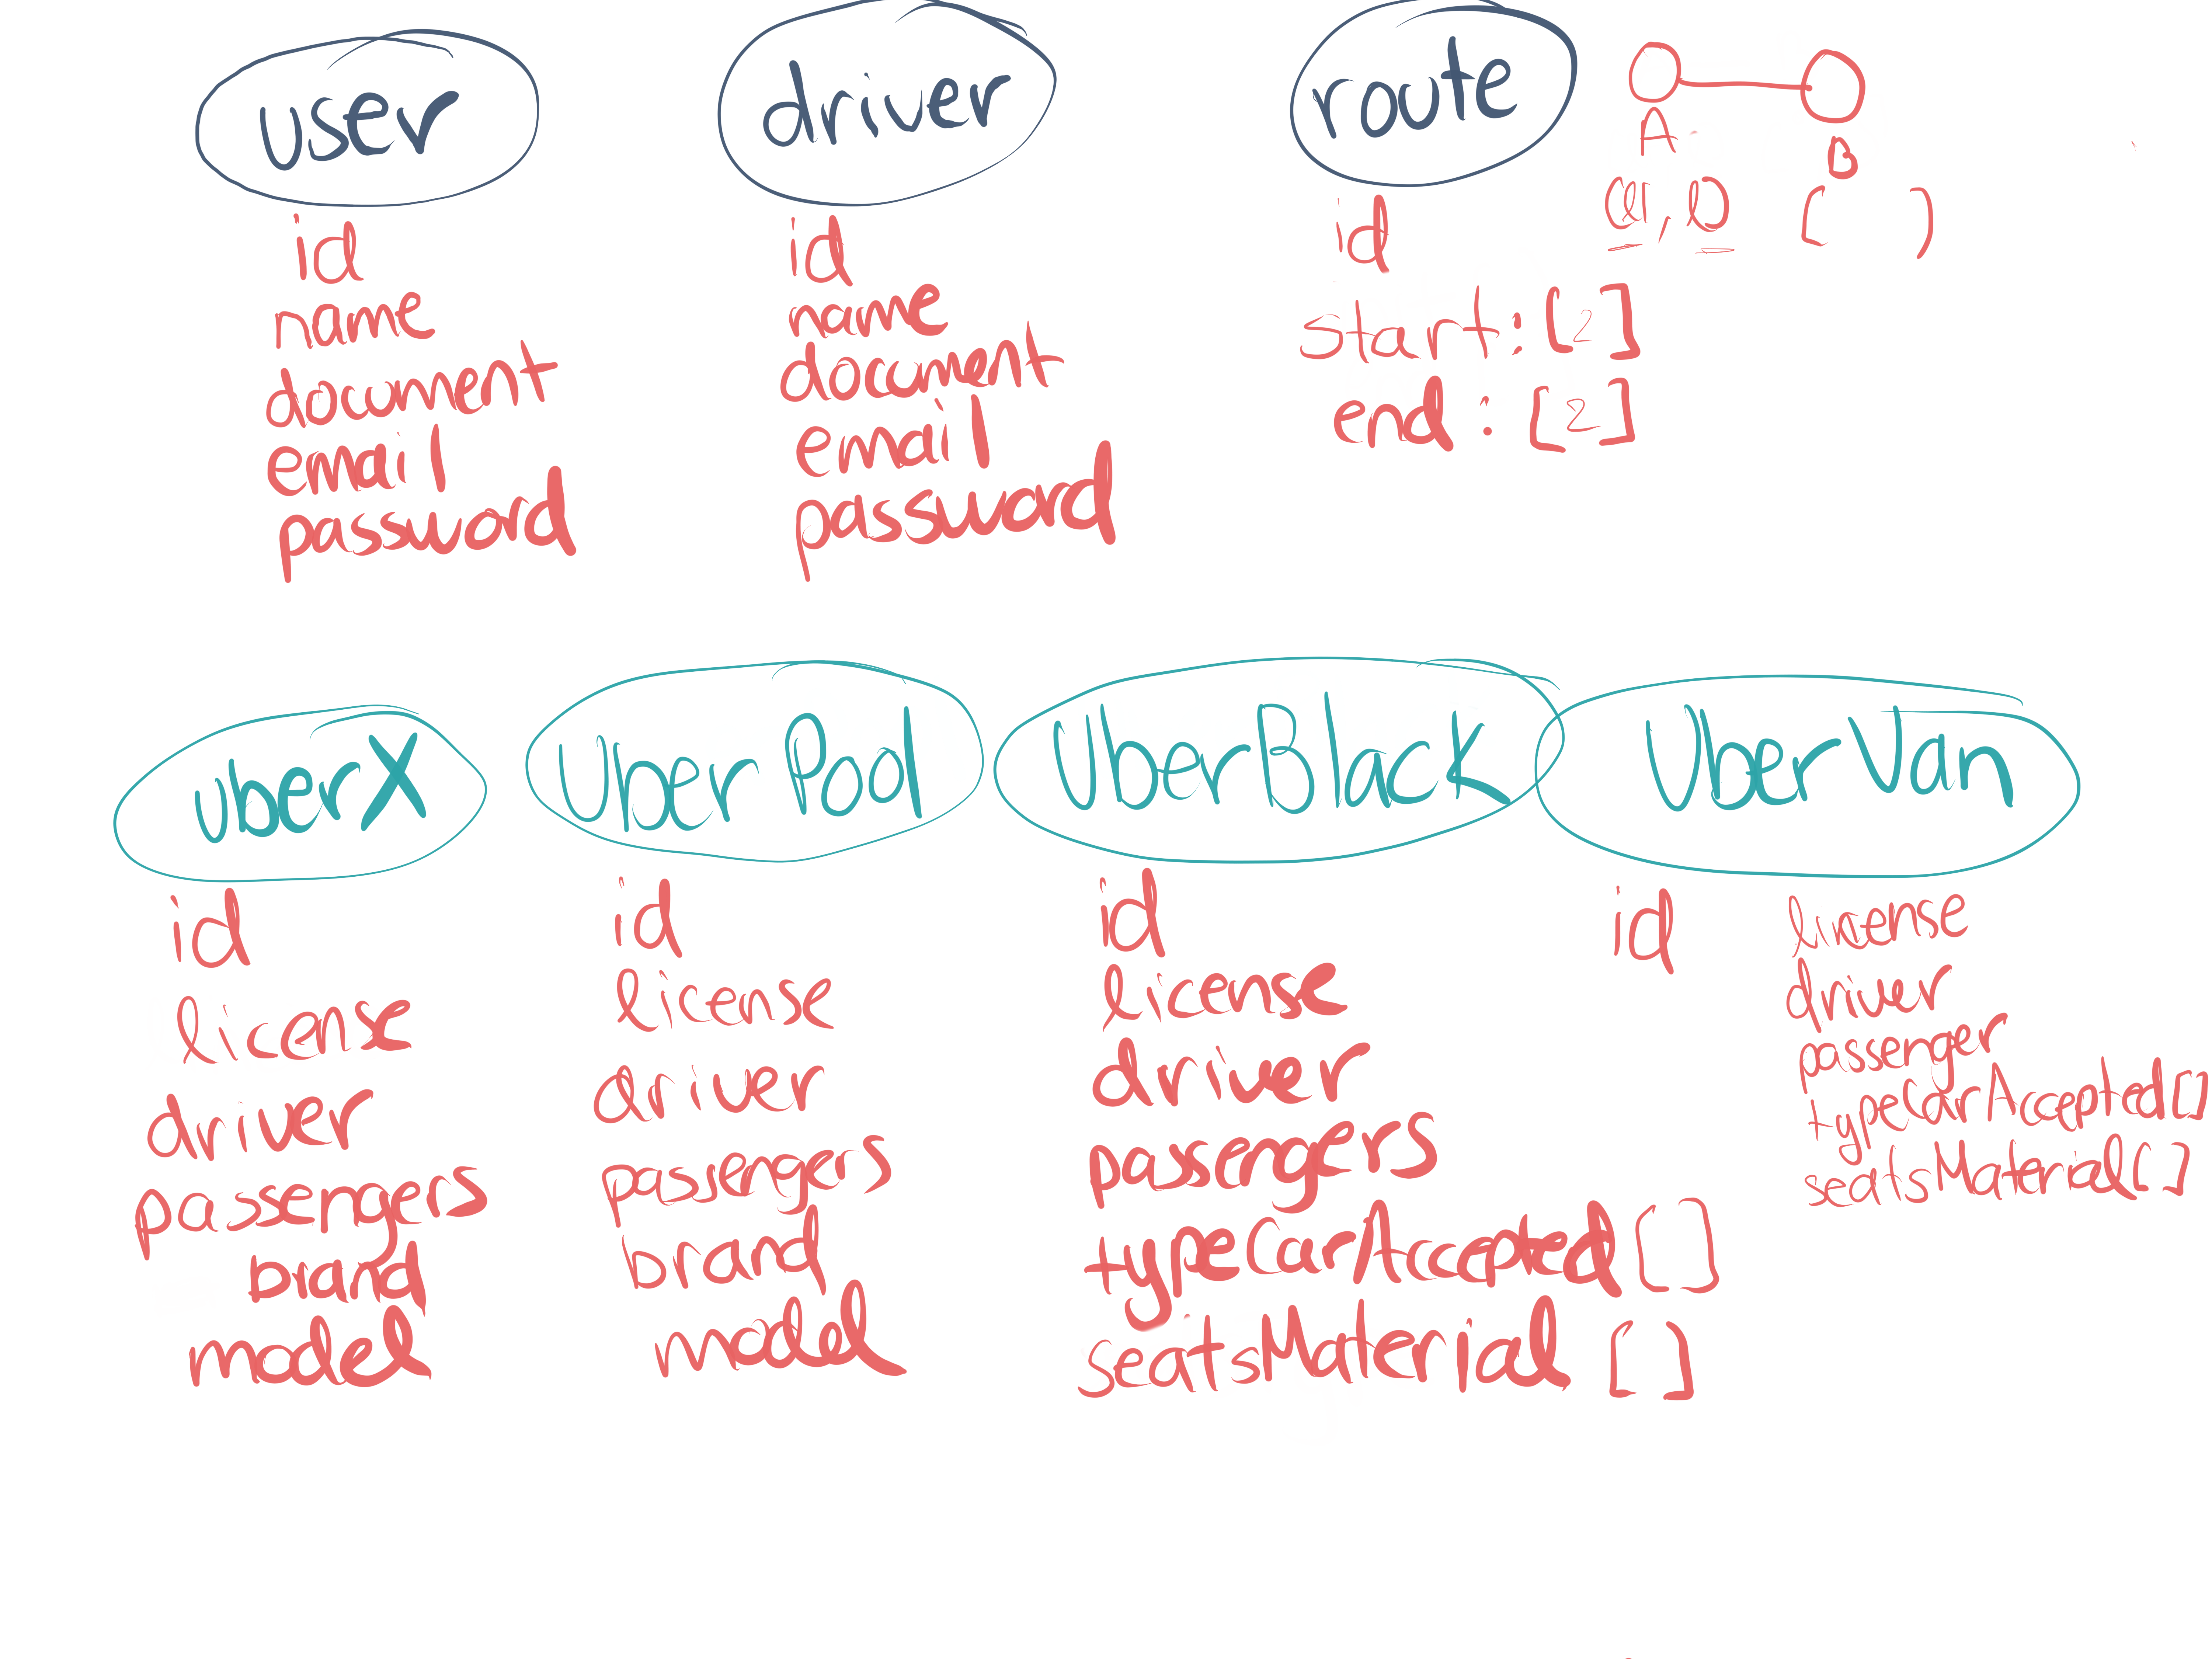 user
id
name
document
email
password
driver
id
name
document
email
password
route
id
start: [2]
end: [2]
A
B
UberX
id
license
driver
passengers
brand
model
UberPool
id
license
driver
passengers
brand
model
UberBlack
id
license
driver
passengers
typeCarAccepted []
seatsMaterial []
UberVan
id
license
driver
passenger
typeCarAccepted []
seatsMaterial []